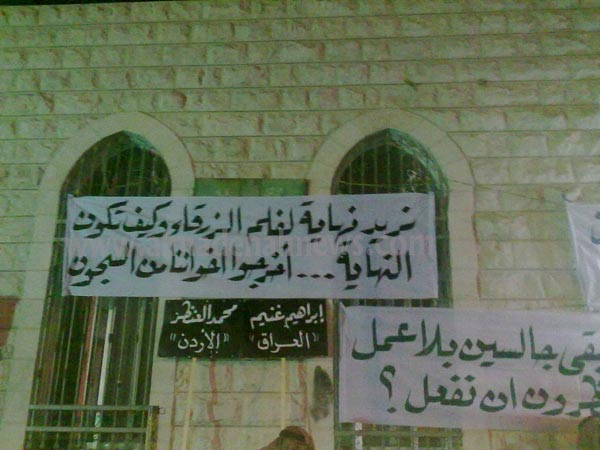 نريد نهاية لفلم الزرقاء وكيف تكون
النهاية ... أخرجوا اخواننا من السجون
ابراهيم غنيم
"العراق"
محمد
"الأردن"
جالسين بلا عمل
ان نفعل ؟